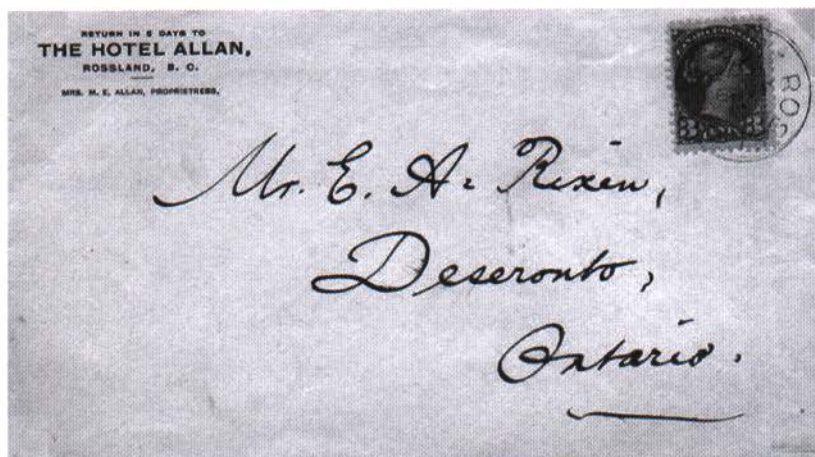 RETURN IN 5 DAYS TO
THE HOTEL ALLAN,
ROSSLAND, B. C.
MRS. M. E. ALLAN, PROPRIETRESS.
3 3
ROS
Mr. E. A. Rixen,
Deseronto,
Ontario.